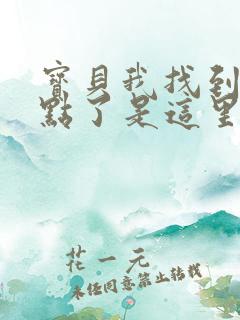 寶貝我找到
點了是這里
花一元
未经同意禁止转载